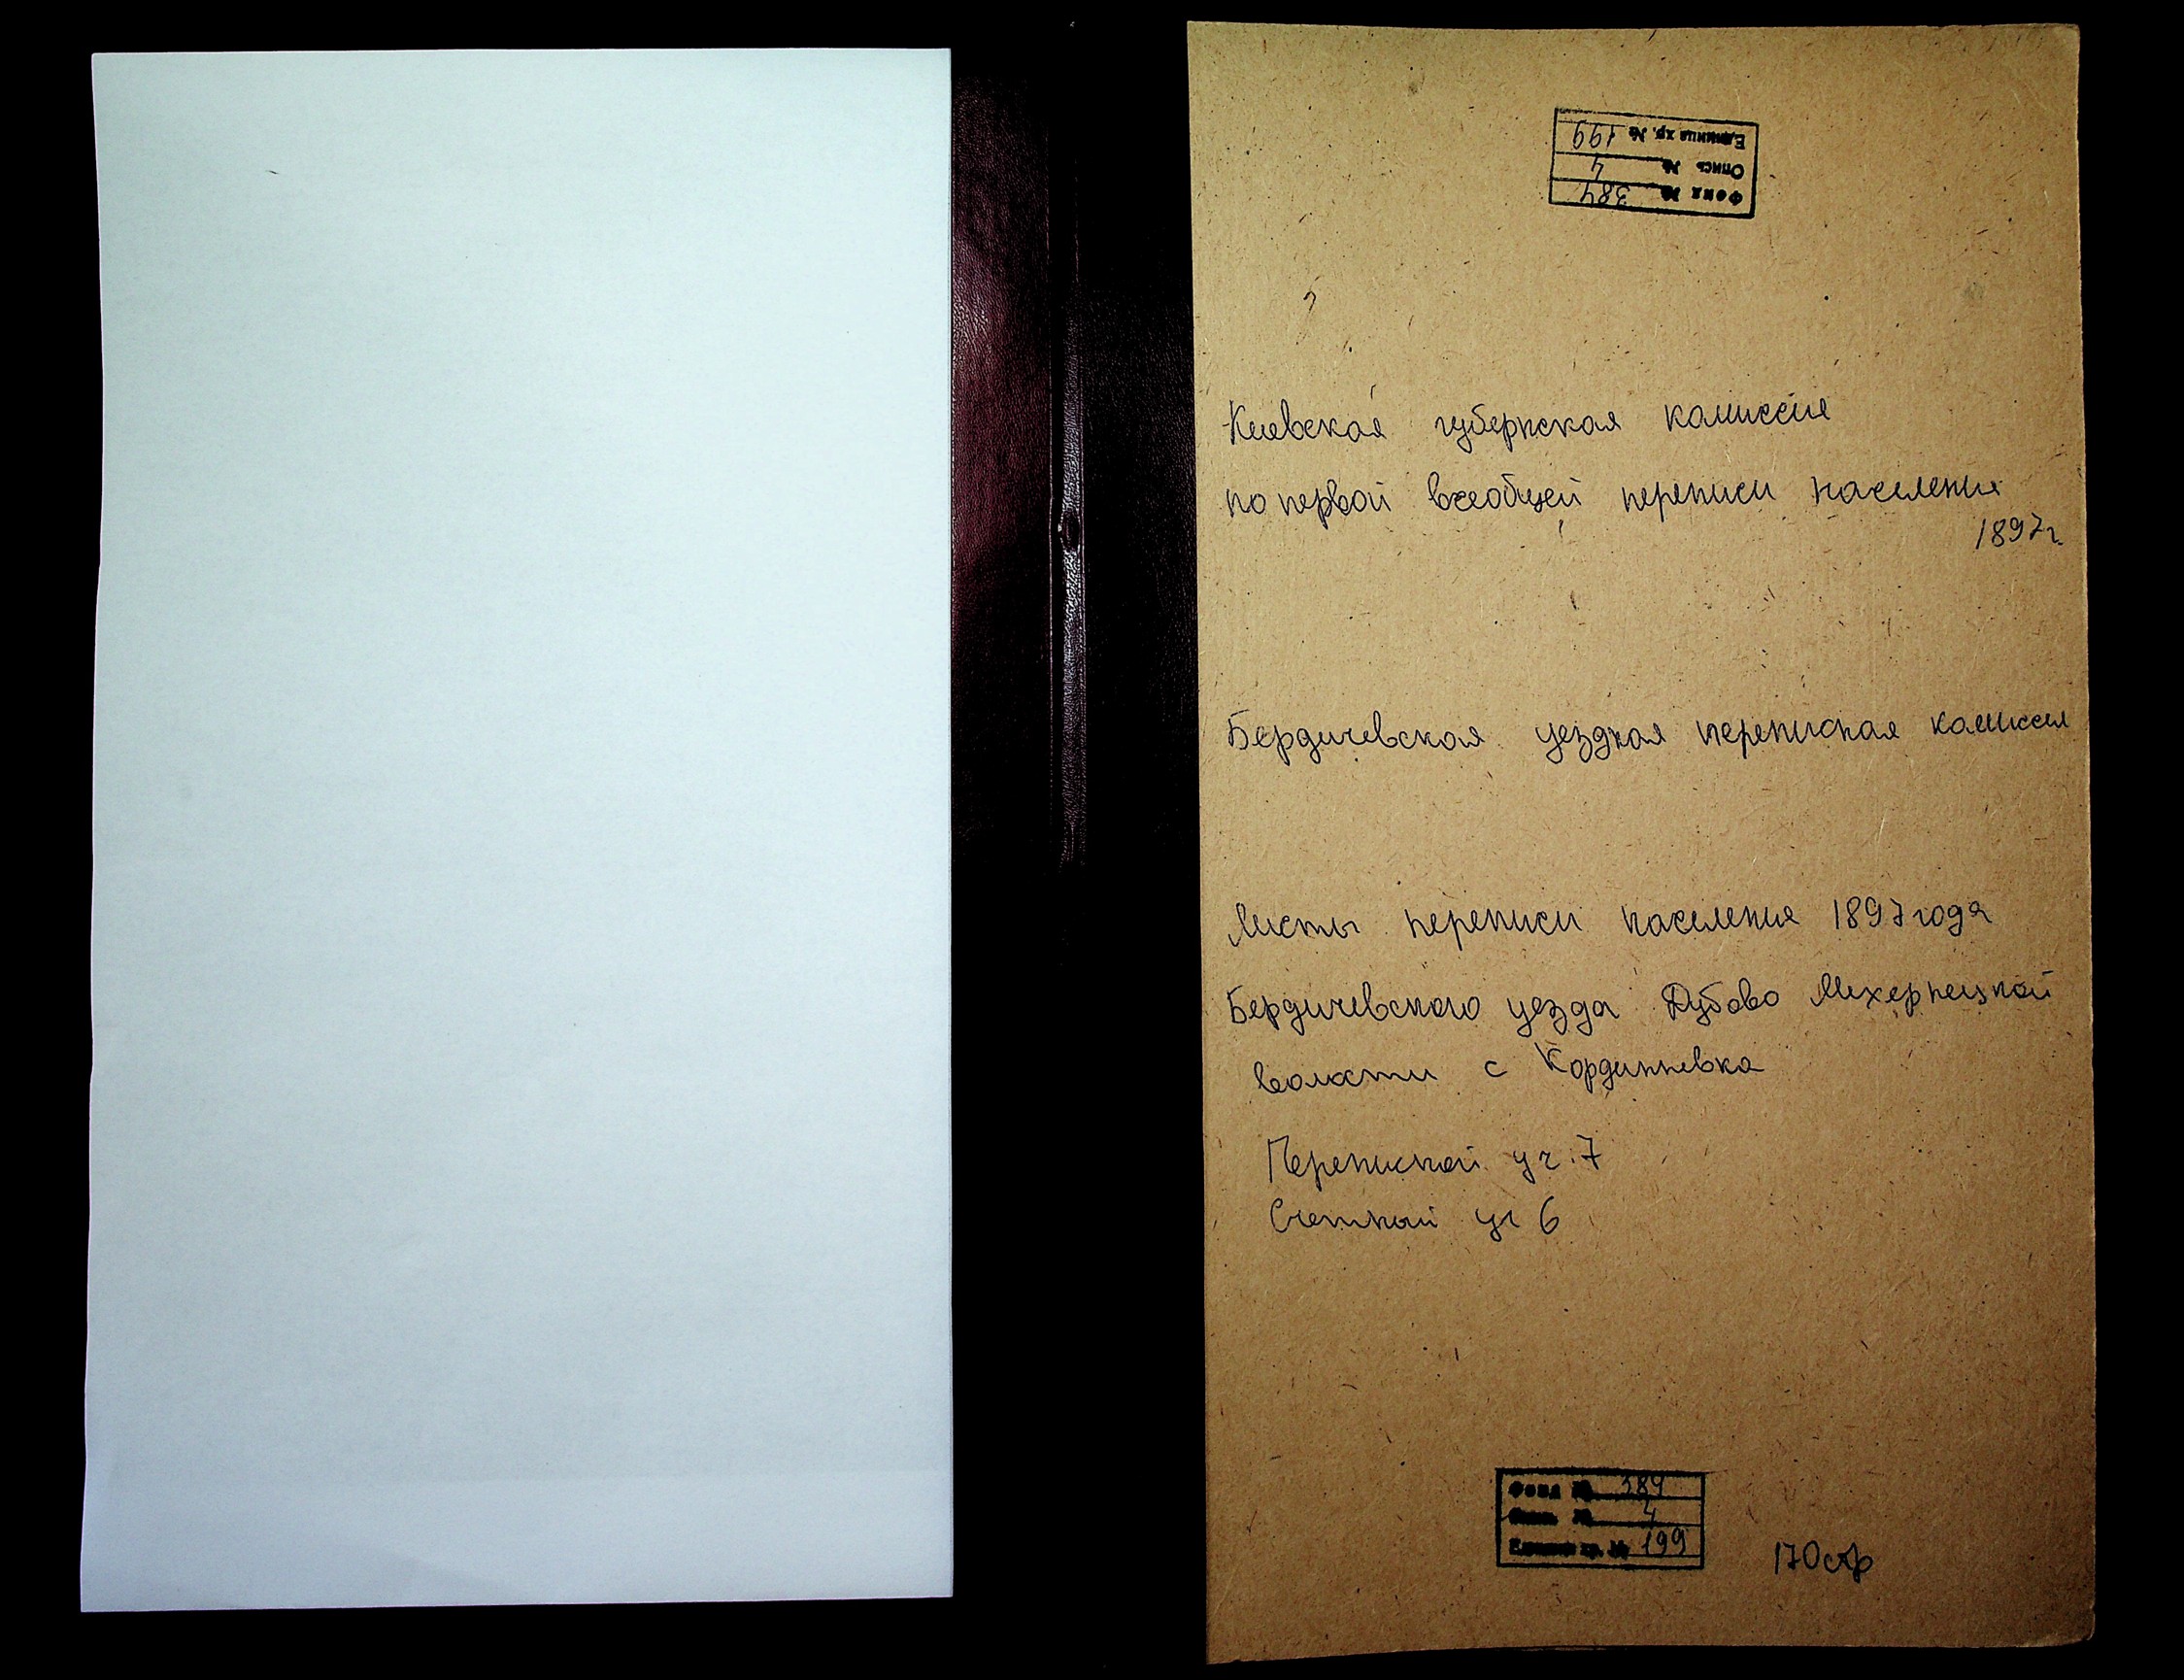 Фонд № 384
Опись № 4
Единица хр. № 199
Киевская губернская комиссия
по первой всеобщей переписи населения
1897г.
Бердичевская уездная переписная комиссия
Листы переписи населения 1897 года
Бердичевского уезда Дубово Мехернецкой
волости с Кордишевка
Переписной уч. 7
Счетный уч 6
Фонд № 384
Опись № 4
Единица хр. № 199
170 стр